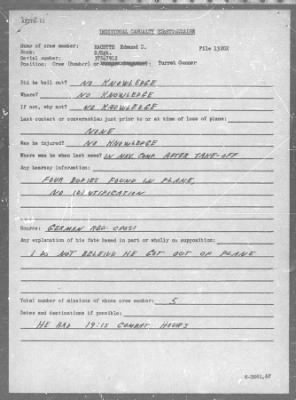 INDIVIDUAL CASUALTY QUESTIONNAIRE
Name of crew member: Edmund J. File 13202
Rank: S/Sgt.
Serial number:
Position: Crew (Bomber) or Turret Gunner
Did he bail out? NO KNOWLEDGE
Where? NO KNOWLEDGE
If not, why not? NO KNOWLEDGE
Last contact or conversation just prior to or at time of loss of plane:
NONE
Was he injured? NO KNOWLEDGE
Where was he when last seen? IN NAV. COMP. AFTER TAKE-OFF
Any hearsay information:
FOUR BODIES FOUND IN PLANE,
NO IDENTIFICATION
Source: GERMAN RED CROSS
Any explanation of his fate based in part or wholly on supposition:
I DO NOT BELIEVE HE GOT OUT OF PLANE
Total number of missions of above crew member: 5
Dates and destinations if possible:
HE HAD 19:15 COMBAT HOURS